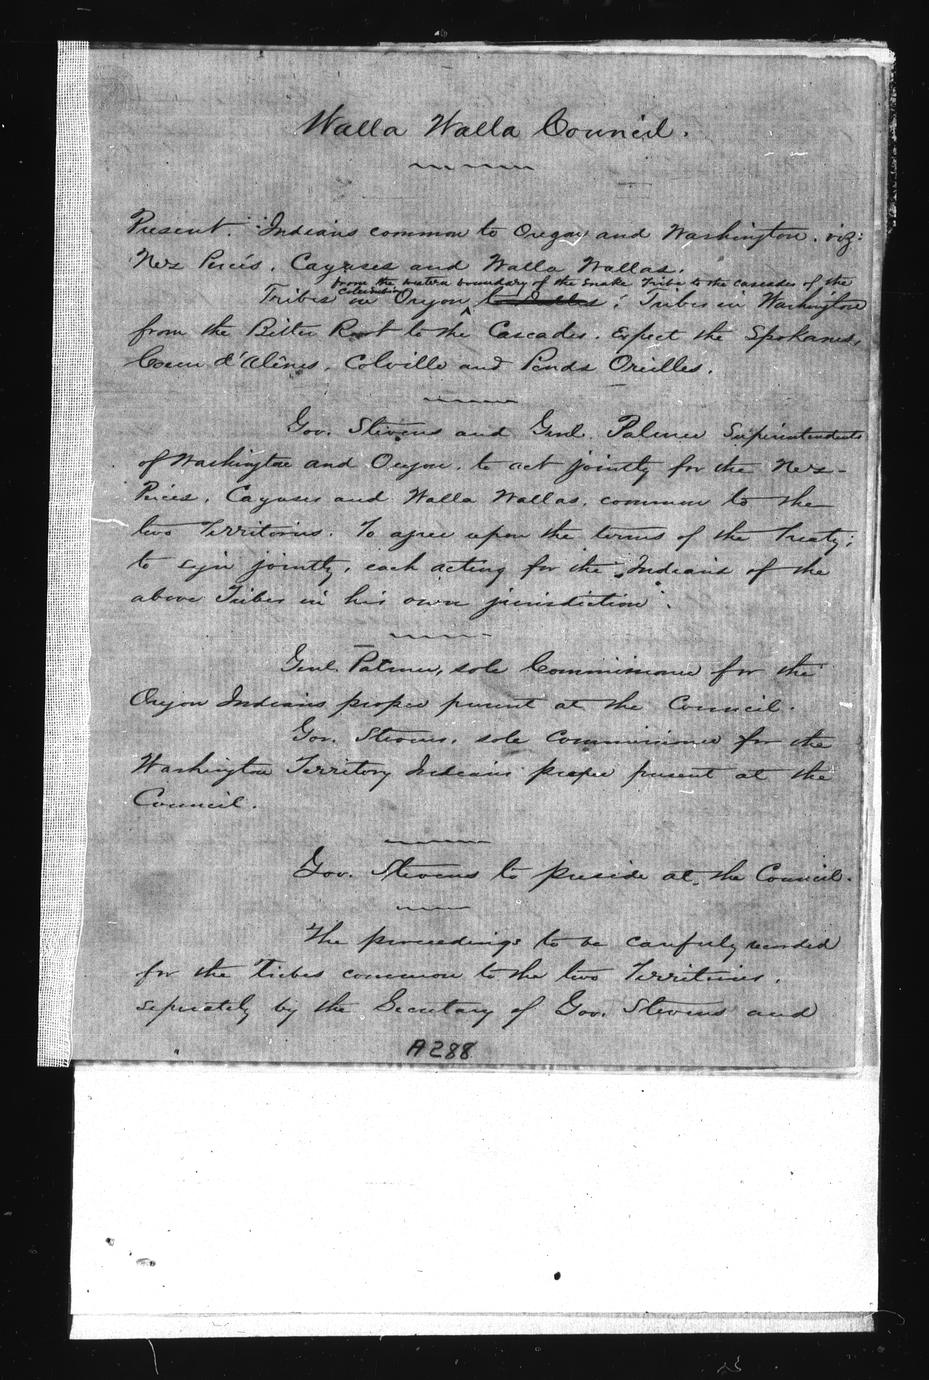 Walla Walla Council.
Present. Indians common to Oregon and Washington. viz:
Nez Percés, Cayuses and Walla Wallas.
from the western boundary of the Snake Tribe to the cascades of the
Columbia
Tribes in Oregon ; Tribes in Washington
from the Bitter Root to the Cascades. Expect the Spokanes,
Coeur d'Alênes, Colville and Pends Oreilles.
Gov. Stevens and Genl. Palmer Superintendents
of Washington and Oregon, to act jointly for the Nez-
Percés, Cayuses and Walla Wallas, common to the
two Territories. To agree upon the terms of the Treaty;
to sign jointly, each acting for the Indians of the
above Tribes in his own jurisdiction.
Genl. Palmer, sole Commissioner for the
Oregon Indians proper present at the Council.
Gov. Stevens, sole commissioner for the
Washington Territory Indians proper present at the
Council.
Gov. Stevens to preside at the Council.
The proceedings to be carefuly recorded
for the Tribes common to the two Territories,
seprately by the Secretary of Gov. Stevens and
A288